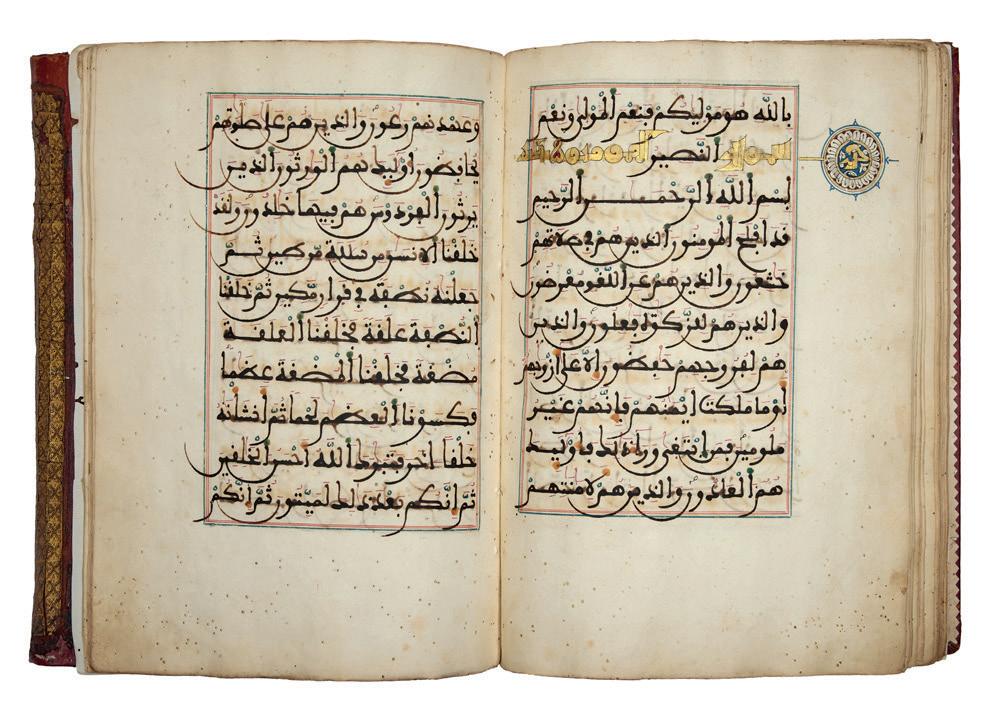 بالله هو موليكم فنعم المولى ونعم
النصير
بسم الله الرحمن الرحيم
قد افلح المومنون الذين هم في صلاتهم
خشعون والذين هم عن اللغو معرضون
والذين هم للزكوة فعلون والذين
هم لفروجهم حفظون الا على ازوجهم
او ما ملكت ايمنهم فانهم غير
ملومين فمن ابتغى ورا ذلك فاوليك
هم العادون والذين هم لامنتهم
وعهدهم رعون والذين هم على صلوتهم
يحافظون اوليك هم الورثون الذين
يرثون الفردوس هم فيها خلدون ولقد
خلقنا الانسن من سللة من طين ثم
جعلنه نطفة في قرار مكين ثم خلقنا
النطفة علقة فخلقنا العلقة
مضغة فخلقنا المضغة عظما
فكسونا العظم لحما ثم انشانه
خلقا اخر فتبرك الله احسن الخلقين
ثم انكم بعد ذلك لميتون ثم انكم